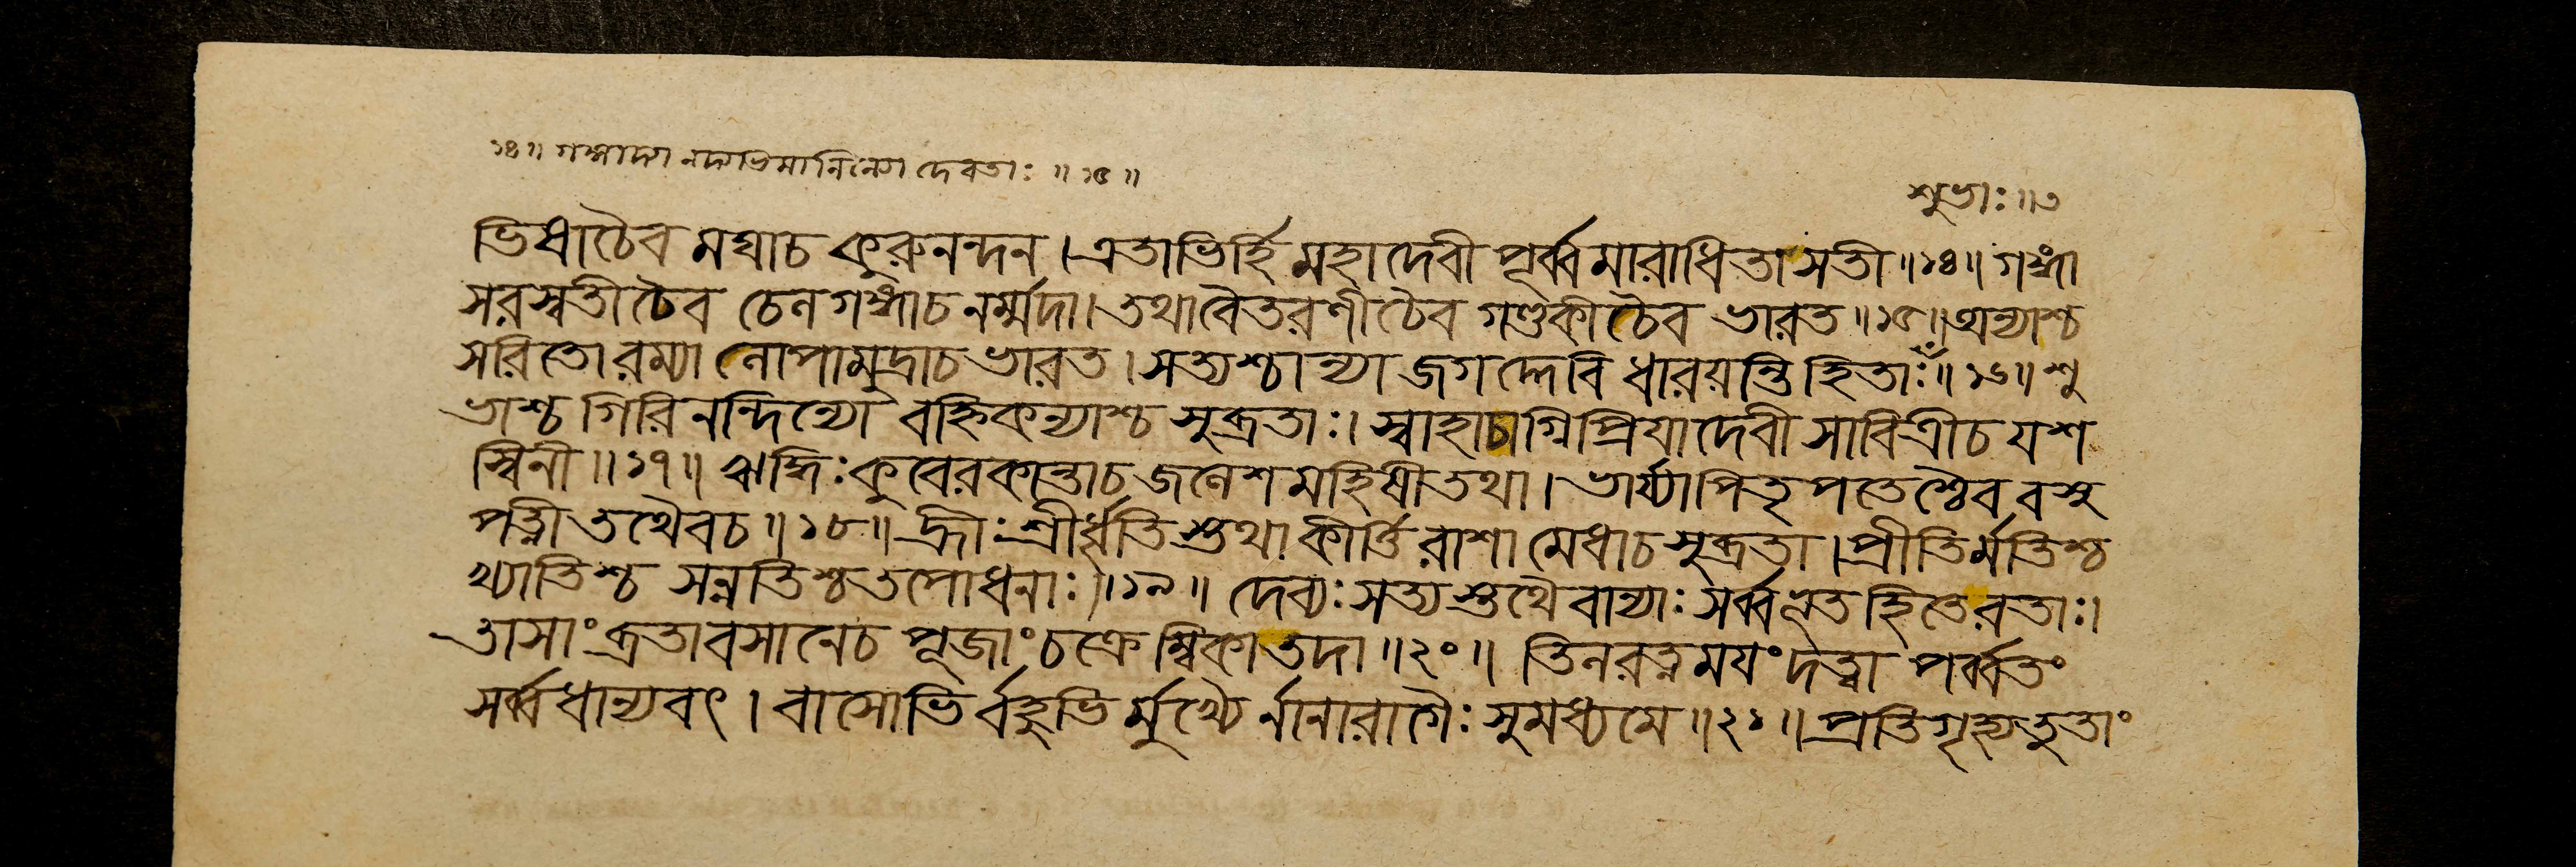 ১৪॥ গঙ্গাদ্যা নদ্যভিমানিন্যো দেবতাঃ ॥ ১৫ ॥
শুভাঃ ॥৩
ভিধাচৈব মঘাচ কুরুনন্দন । এতাভির্হি মহাদেবী পূর্ব্বমারাধিতা সতী ॥১৪॥ গঙ্গা
সরস্বতী চৈব চেনগঙ্গাচ নর্ম্মদা। তথাবৈতরণীচৈব গণ্ডকীচৈব ভারত ॥১৫॥ অন্যাশ্চ
সরিতো রম্যা নোপামুদ্রাচ ভারত । সত্যশ্চান্যা জগদ্দেবি ধারয়ন্তি হিতাঃ ॥১৬॥ শু
ভাশ্চ গিরিনন্দিন্যো বহ্নিকন্যাশ্চ সুব্রতাঃ। স্বাহাচাগ্নিপ্রিযাদেবী সাবিত্রীচ যশ
স্বিনী ॥ ১৭ ॥ ঋদ্ধিঃ কুবেরকান্তাচ জনেশমহিষীতথা । ভার্য্যাপিতৃপতেশ্চৈব বসু
পত্নী তথৈবচ ॥ ১৮ ॥ হ্রীঃ শ্রীর্ধৃতিস্তথা কীর্ত্তিরাশা মেধাচ সুব্রতা । প্রীতির্মতিশ্চ
খ্যাতিশ্চ সন্নতিশ্চ তপোধনাঃ ॥১৯ ॥ দেব্যঃ সত্যস্তথৈবান্যাঃ সর্ব্বভূতহিতেরতাঃ।
তাসাং ব্রতাবসানেচ পূজাং চক্রেম্বিকাতদা ॥২০॥ তিনরত্নময়ং দত্বা পর্ব্বতং
সর্ব্বধান্যবৎ । বাসোভির্বহুভির্মুখ্যৈর্নানারাগৈঃ সুমধ্যমে ॥২১॥ প্রতিগৃহ্যতুতাং